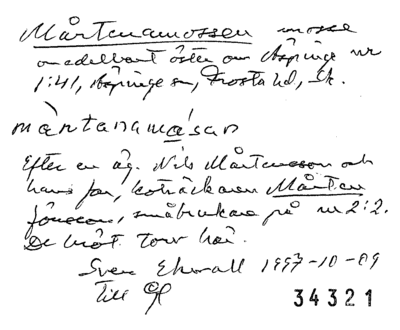 Mårtensmossen mosse
omedelbart öster om Äspinge nr
1:41, Äspinge sn, Frosta hd, Sk.
mårtanamåsan
Efter en äg. Nils Mårtensson och
hans far, Mårten
Jönsson, småbrukare på nr 2:2.
De bröt torv här.
Sven Ekwall 1997-10-09
till
34321